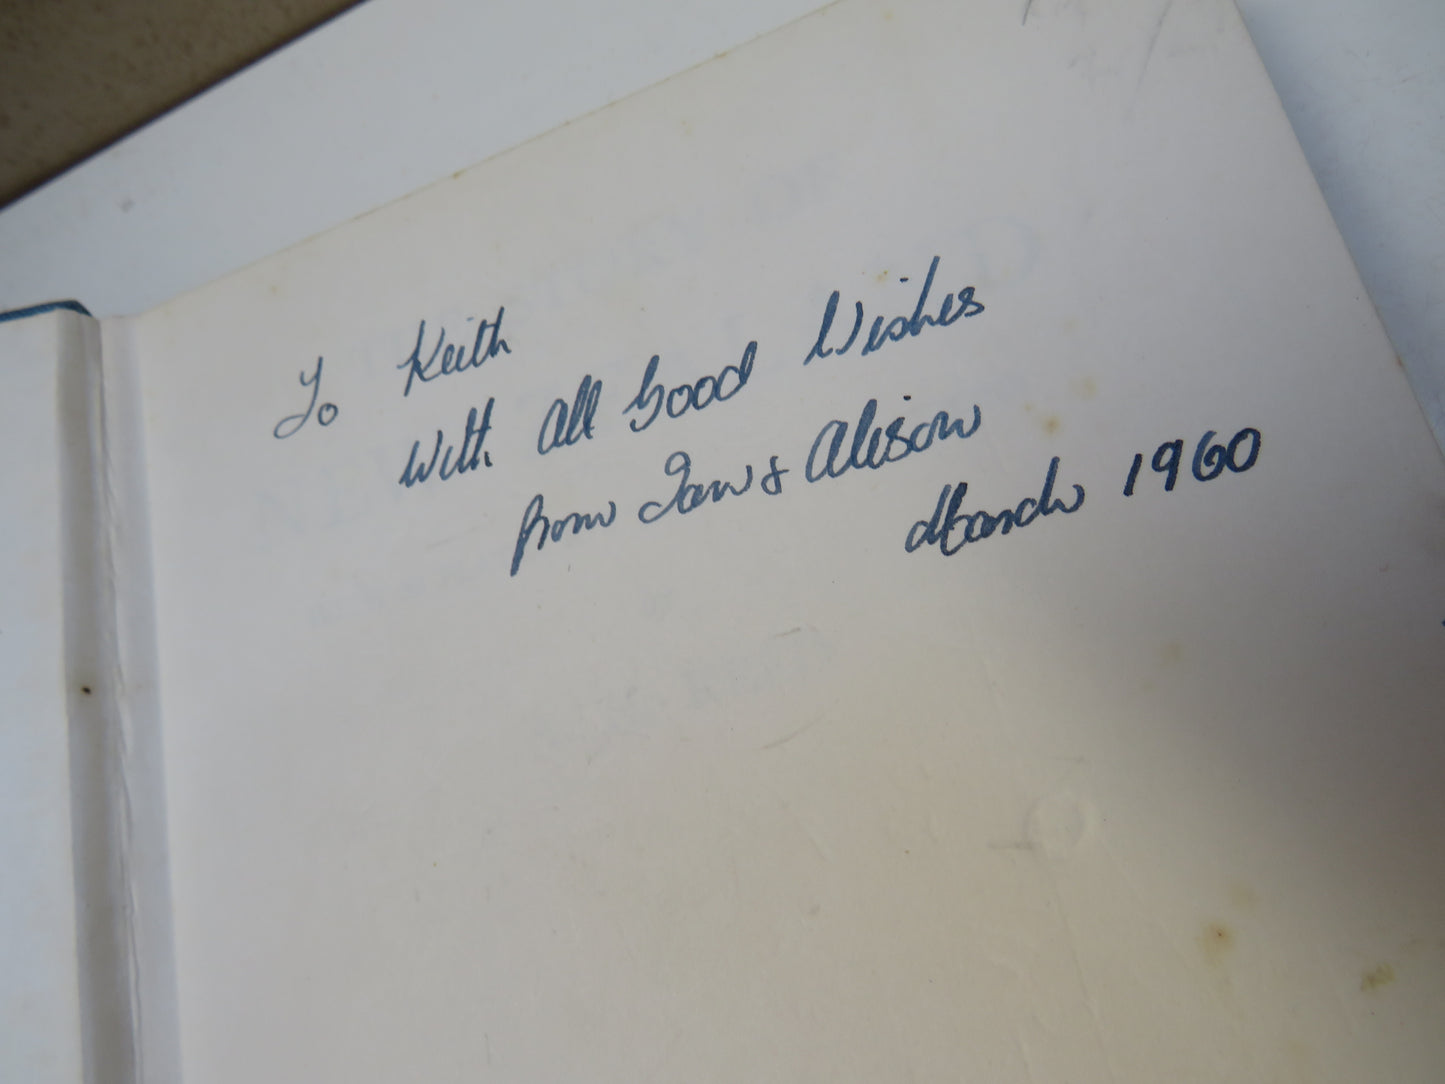 To Keith
With All Good Wishes
from Ian & Alison
March 1960